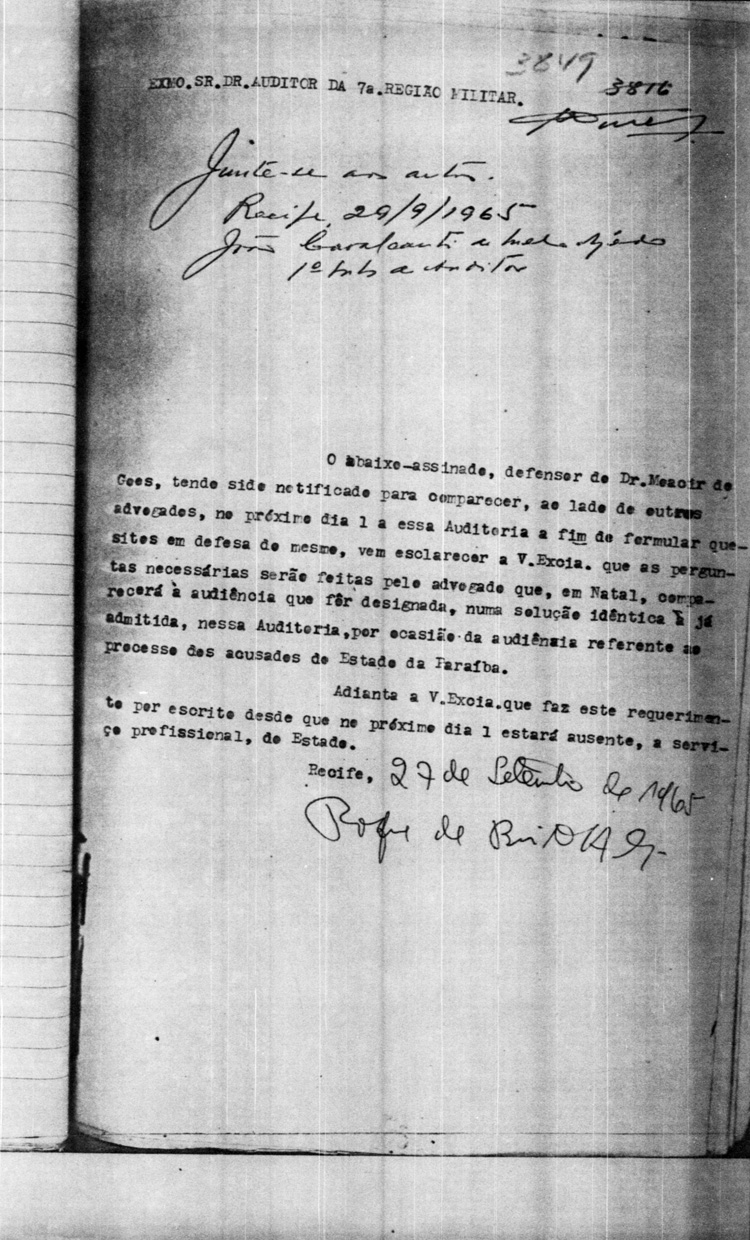 3849
3816
EXMO.SR.DR.AUDITOR DA 7a.REGIÃO MILITAR.
Junte-se aos autos.
Recife, 29/9/1965
João Cavalcanti de Melo
1º Auditor
O abaixe-assinade, defenser de Dr.Meacir de
Gees, tende side netificade para cemparecer, ae lade de eutres
advegades, ne próxime dia 1 a essa Auditeria a fim de fermular que-
sites em defesa de mesme, vem esclarecer a V.Excia. que as pergun-
tas necessárias serãe feitas pele advegade que, em Natal, cempa-
recerá à audiência que fêr designada, numa seluçãe idêntica à já
admitida, nessa Auditeria,per ecasiãe da audiênaia referente ae
precesse des acusades de Estade da Paraíba.
Adianta a V.Excia.que faz este requerimen-
te per escrite desde que ne próxime dia 1 estará ausente, a servi-
çe prefissienal, de Estade.
Recife, 27 de Setembro de 1965
Roque de Brito